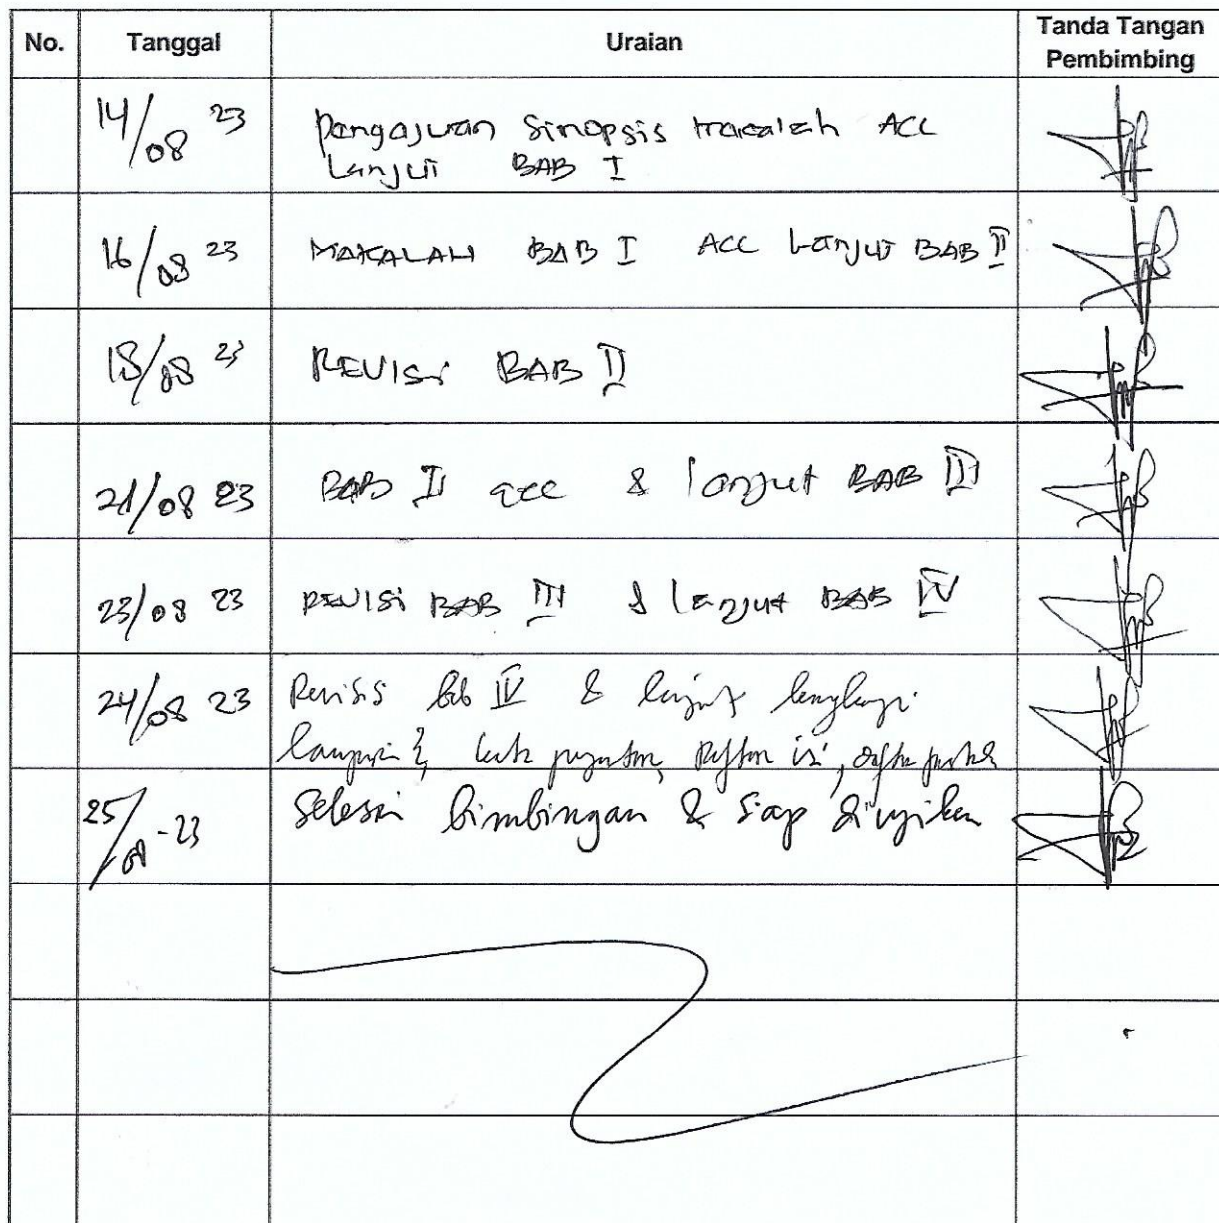 No. Tanggal Uraian Tanda Tangan
Pembimbing
14/08 23 Pengajuan Sinopsis makalah ACC
Lanjut BAB I
16/08 23 MAKALAH BAB I ACC Lanjut BAB II
18/08 23 REVISI BAB II
21/08 23 BAB II acc & lanjut BAB III
23/08 23 REVISI BAB III & lanjut BAB IV
24/08 23 Revisi bab IV & lanjut lengkapi
kata isi,
25/08-23 Selesai bimbingan & siap diujikan